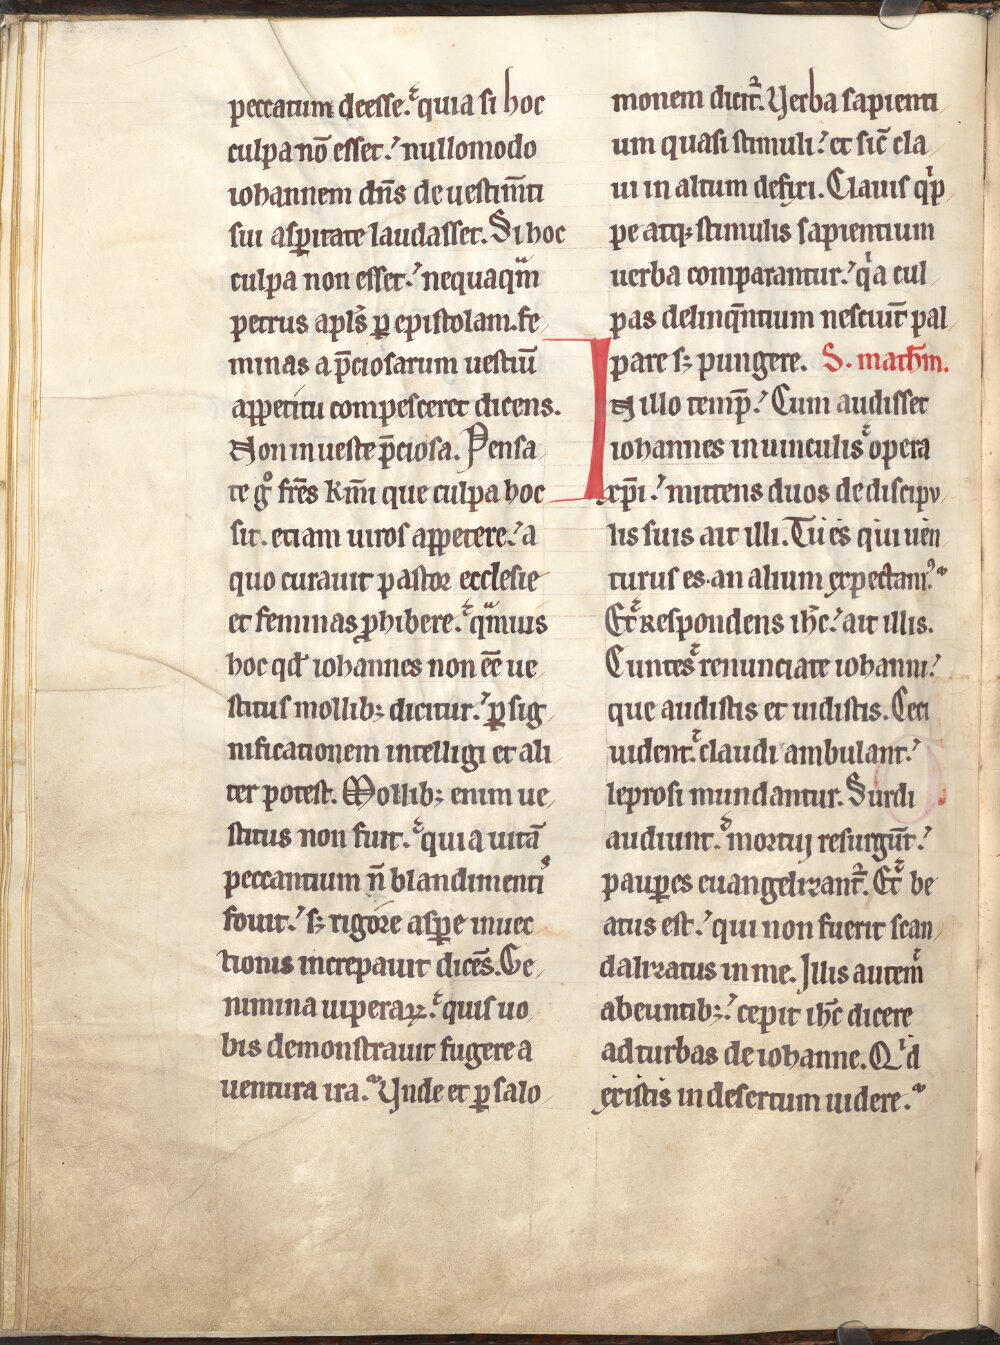 peccatum deesse. quia si hoc
culpa nō esset. nullomodo
iohannem dn̄s de uestim̄ti
sui asꝑitate laudasset. Si hoc
culpa non esset. nequaqᷓm
petrus apl̄s ꝑ epistolam. fe
minas a p̄ciosarum uestiū
appetitu compesceret dicens.
Non in ueste p̄ciosa. Pensa
te gͦ fr̄es km̄i que culpa hoc
sit. etiam uiros appetere. a
quo curauit pastor ecclesie
et feminas ꝓhibere. qᷓmuis
hoc qd̄ iohannes non ēē ue
stitus mollib; dicitur. ꝑ sig
nificationem intelligi et ali
ter potest. Mollib; enim ue
stitus non fuit. quia uitā
peccantium n̄ blandimentiˢ
fouit. s; rigore asꝑe inuec
tionis increpauit dicēs. Ge
nimina uiperaꝝ. quis uo
bis demonstrauit fugere a
uentura ira. Vnde et ꝑ salo
monem dicit᷑. Verba sapienti
um quasi stimuli. et sic̄ cla
ui in altum defixi. Clauis qͥp
pe atq; stimulis sapientium
uerba comparantur. qͥa cul
pas delinq̄ntium nesciūt pal
pare s; pungere. S. math̄m.
IN illo temp̄. Cum audisset
iohannes in uinculis opera
xp̄i. mittens duos de discipu
lis suis ait illi. Tu es qui uen
turus es. an alium expectamꝰ.
Et Respondens ih̄c. ait illis.
Euntes renunciate iohanni.
que audistis et uidistis. Ceci
uident. claudi ambulant.
leprosi mundantur. Surdi
audiunt. mortui resurgūt.
pauꝑes euangelizant᷑. Et be
atus est. qui non fuerit scan
dalizatus in me. Illis autem
abeuntib;. cepit ih̄c dicere
ad turbas de iohanne. Qͥd
existis in desertum uidere.